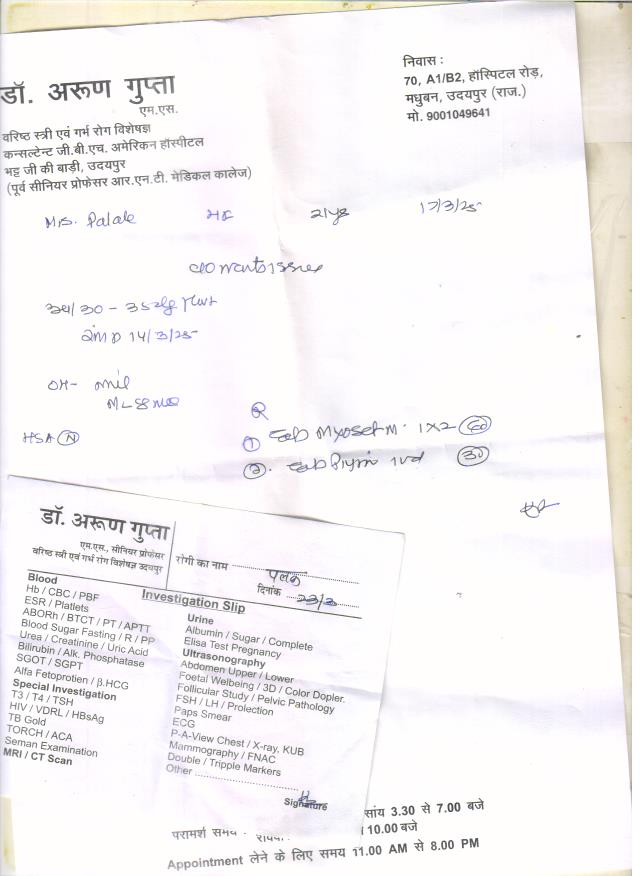 डॉ. अरूण गुप्ता
एम.एस.
वरिष्ठ स्त्री एवं गर्भ रोग विशेषज्ञ
कन्सल्टेन्ट जी.बी.एच. अमेरिकन हॉस्पीटल
भट्ट जी की बाड़ी, उदयपुर
(पूर्व सीनियर प्रोफेसर आर.एन.टी. मेडिकल कालेज)
निवास :
70, A1/B2, हॉस्पिटल रोड़,
मधुबन, उदयपुर (राज.)
मो. 9001049641
Mrs. Palak 21 yrs 17/3/25
14/3/25
OH-
HSA (N)
R
① Tab 1x2 (60)
②. Tab (30)
डॉ. अरूण गुप्ता
एम.एस., सीनियर प्रोफेसर
वरिष्ठ स्त्री एवं गर्भ रोग विशेषज्ञ उदयपुर
रोगी का नाम पलक
दिनांक 23/3
Investigation Slip
Blood
Hb / CBC / PBF
ESR / Platlets
ABORh / BTCT / PT / APTT
Blood Sugar Fasting / R / PP
Urea / Creatinine / Uric Acid
Bilirubin / Alk. Phosphatase
SGOT / SGPT
Alfa Fetoprotien / β.HCG
Special Investigation
T3 / T4 / TSH
HIV / VDRL / HBsAg
TB Gold
TORCH / ACA
Seman Examination
MRI / CT Scan
Urine
Albumin / Sugar / Complete
Elisa Test Pregnancy
Ultrasonography
Abdomen Upper / Lower
Foetal Welbeing / 3D / Color Dopler.
Follicular Study / Pelvic Pathology
FSH / LH / Prolection
Paps Smear
ECG
P-A-View Chest / X-ray, KUB
Mammography / FNAC
Double / Tripple Markers
Other ..............................
Signature
सांय 3.30 से 7.00 बजे
परामर्श समय - 10.00 बजे
Appointment लेने के लिए समय 11.00 AM से 8.00 PM